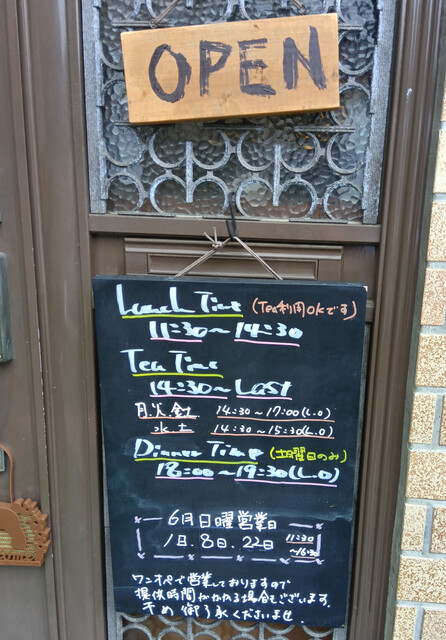 OPEN
Lunch Time (Tea利用OKです)
11:30～14:30
Tea Time
14:30～Last
月火金 14:30～17:00(L.O)
水土 14:30～15:30(L.O)
Dinner Time (土曜日のみ)
18:00～19:30(L.O)
6月日曜営業日
1日.8日.22日 11:30～16:30
ワンオペで営業しておりますので
提供時間がかかる場合もございます。
予め御了承くださいませ.